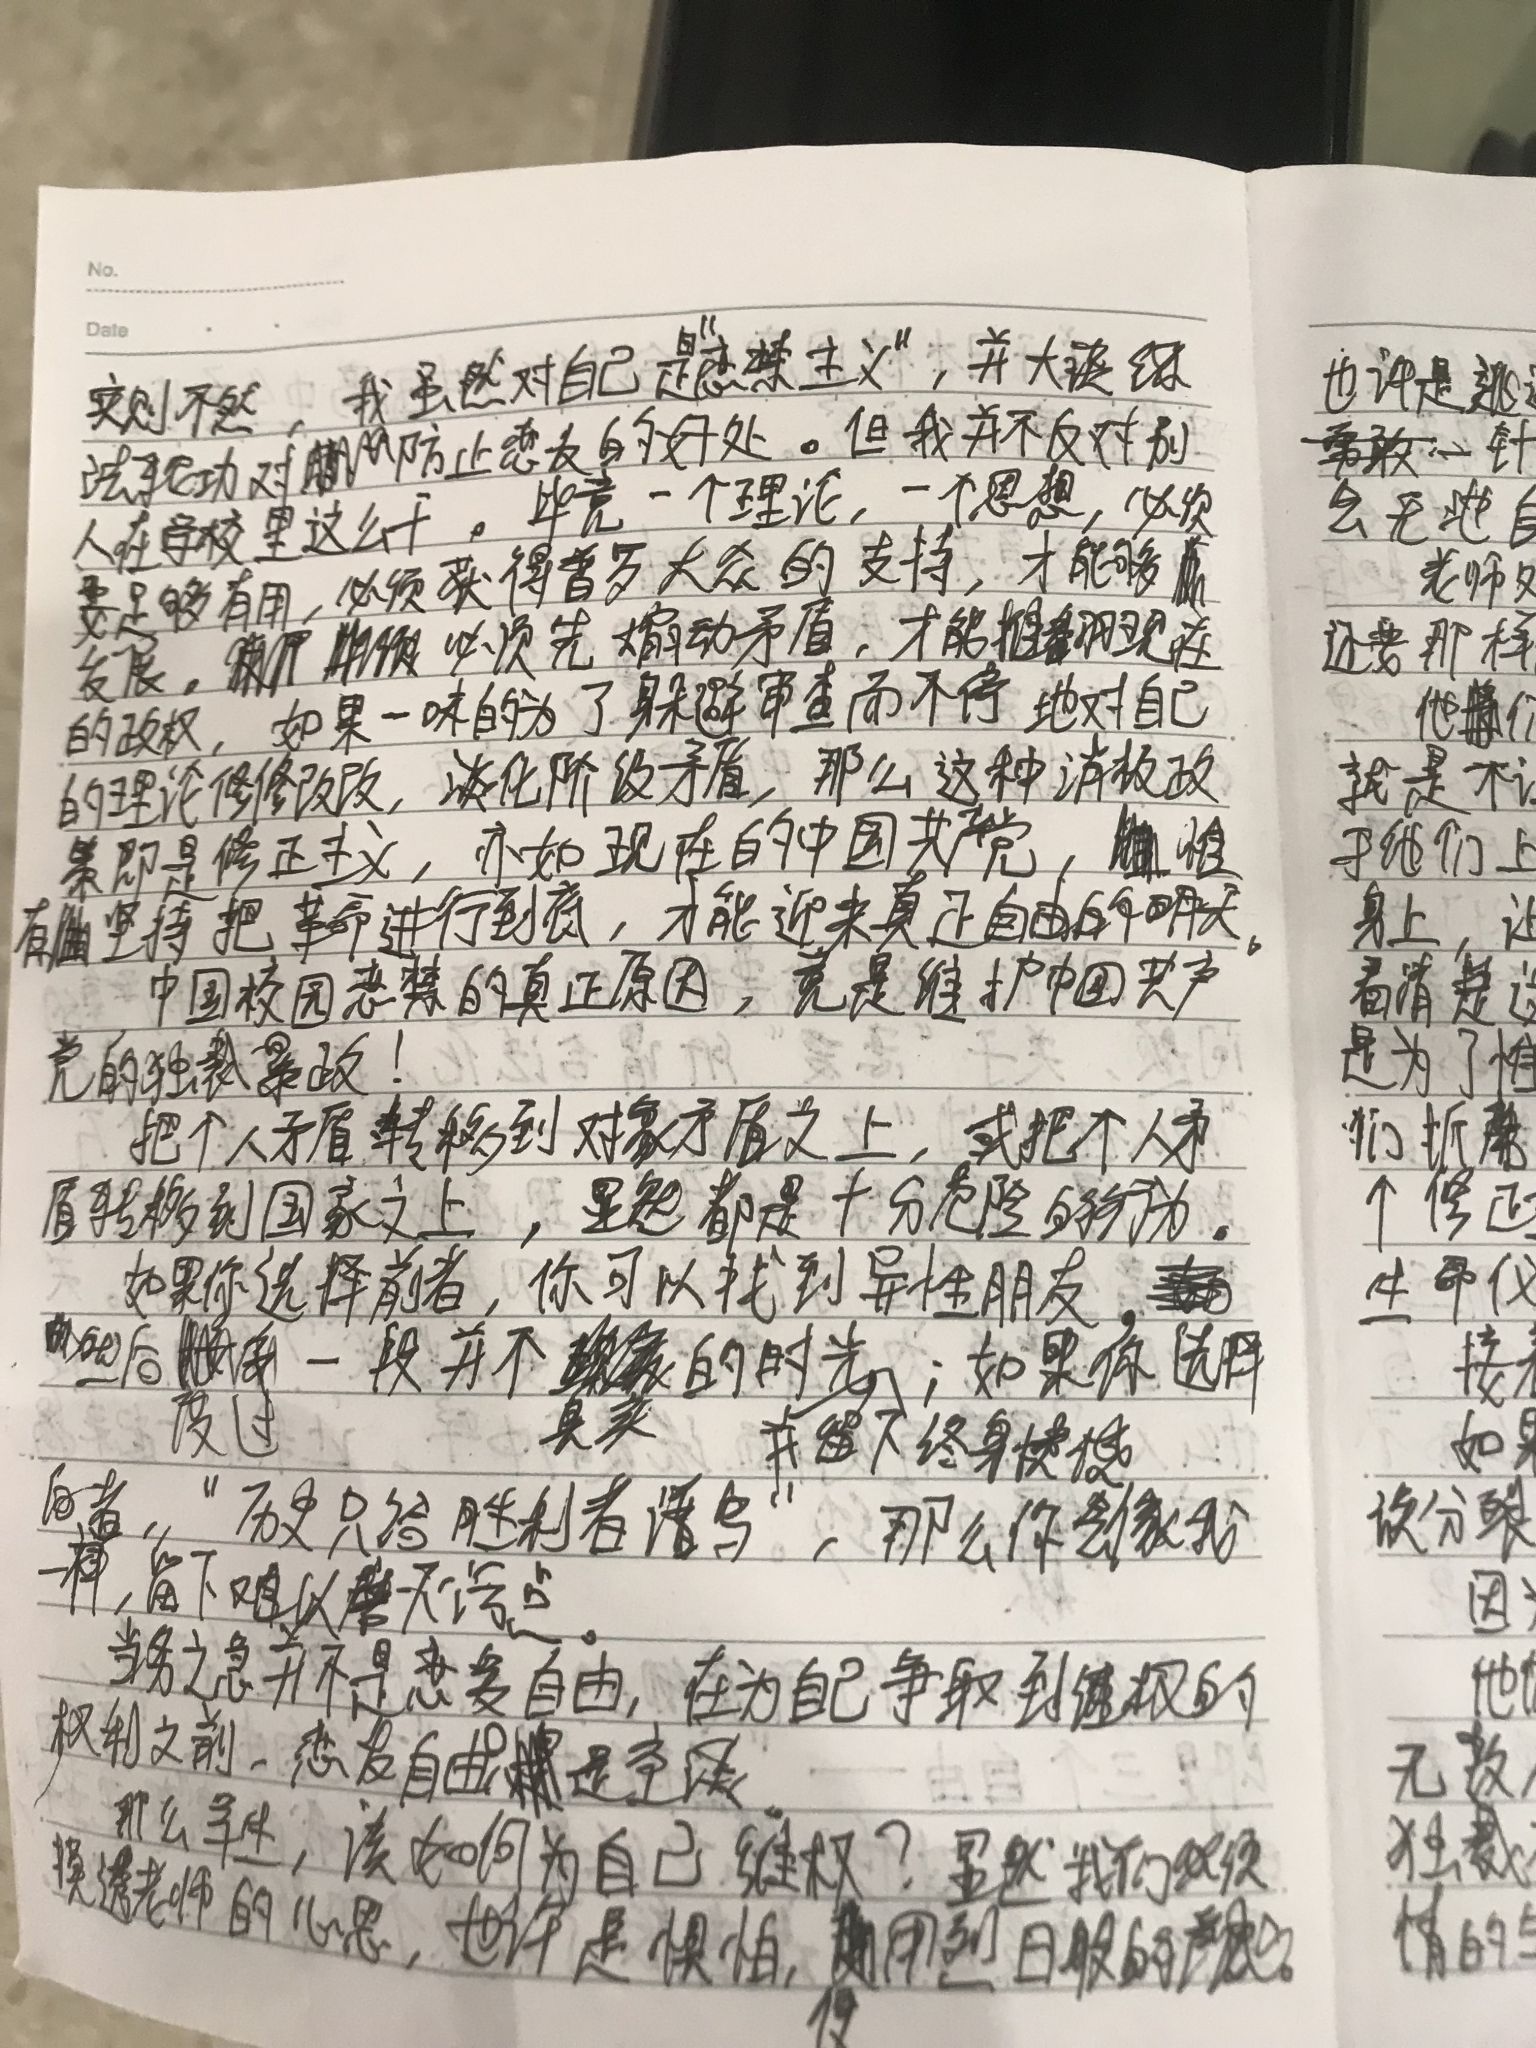 No.
Date
实则不然，我虽然对自己是"恋禁主义"，并大谈练
法轮功对防止恋友的好处。但我并不反对别
人在学校里这么干。毕竟一个理论，一个思想，必须
要足够有用，必须获得普罗大众的支持，才能够
发展。必须先煽动矛盾，才能推翻现在
的政权，如果一味的为了躲避审查而不停地对自己
的理论修修改改，淡化阶级矛盾，那么这种消极政
策即是修正主义，亦如现在的中国共产党，唯
有坚持把革命进行到底，才能迎来真正自由的明天。
中国校园恋禁的真正原因，竟是维护中国共产
党的独裁暴政！
把个人矛盾转移到对象矛盾之上，或把个人矛
盾转移到国家之上，显然都是十分危险的行为。
如果你选择前者，你可以找到异性朋友，
然后度过一段并不真实的时光，并留下终身遗憾；如果你选择
后者，"历史只给胜利者谱写"，那么你会像我
一样，留下难以磨灭污点。
当务之急并不是恋爱自由，在为自己争取到维权的
权利之前，恋友自由是空谈
那么学生，该如何为自己维权？虽然我们必须
摸透老师的心思，也许是惧怕，使用到日股的
也许是
勇敢
会无地自
老师
还要那样
他们
就是不
于他们上
身上，让
看清楚这
是为了
们折
个修正
生命仅
接着
如果
该分裂
因为
他
无数
独裁
情的